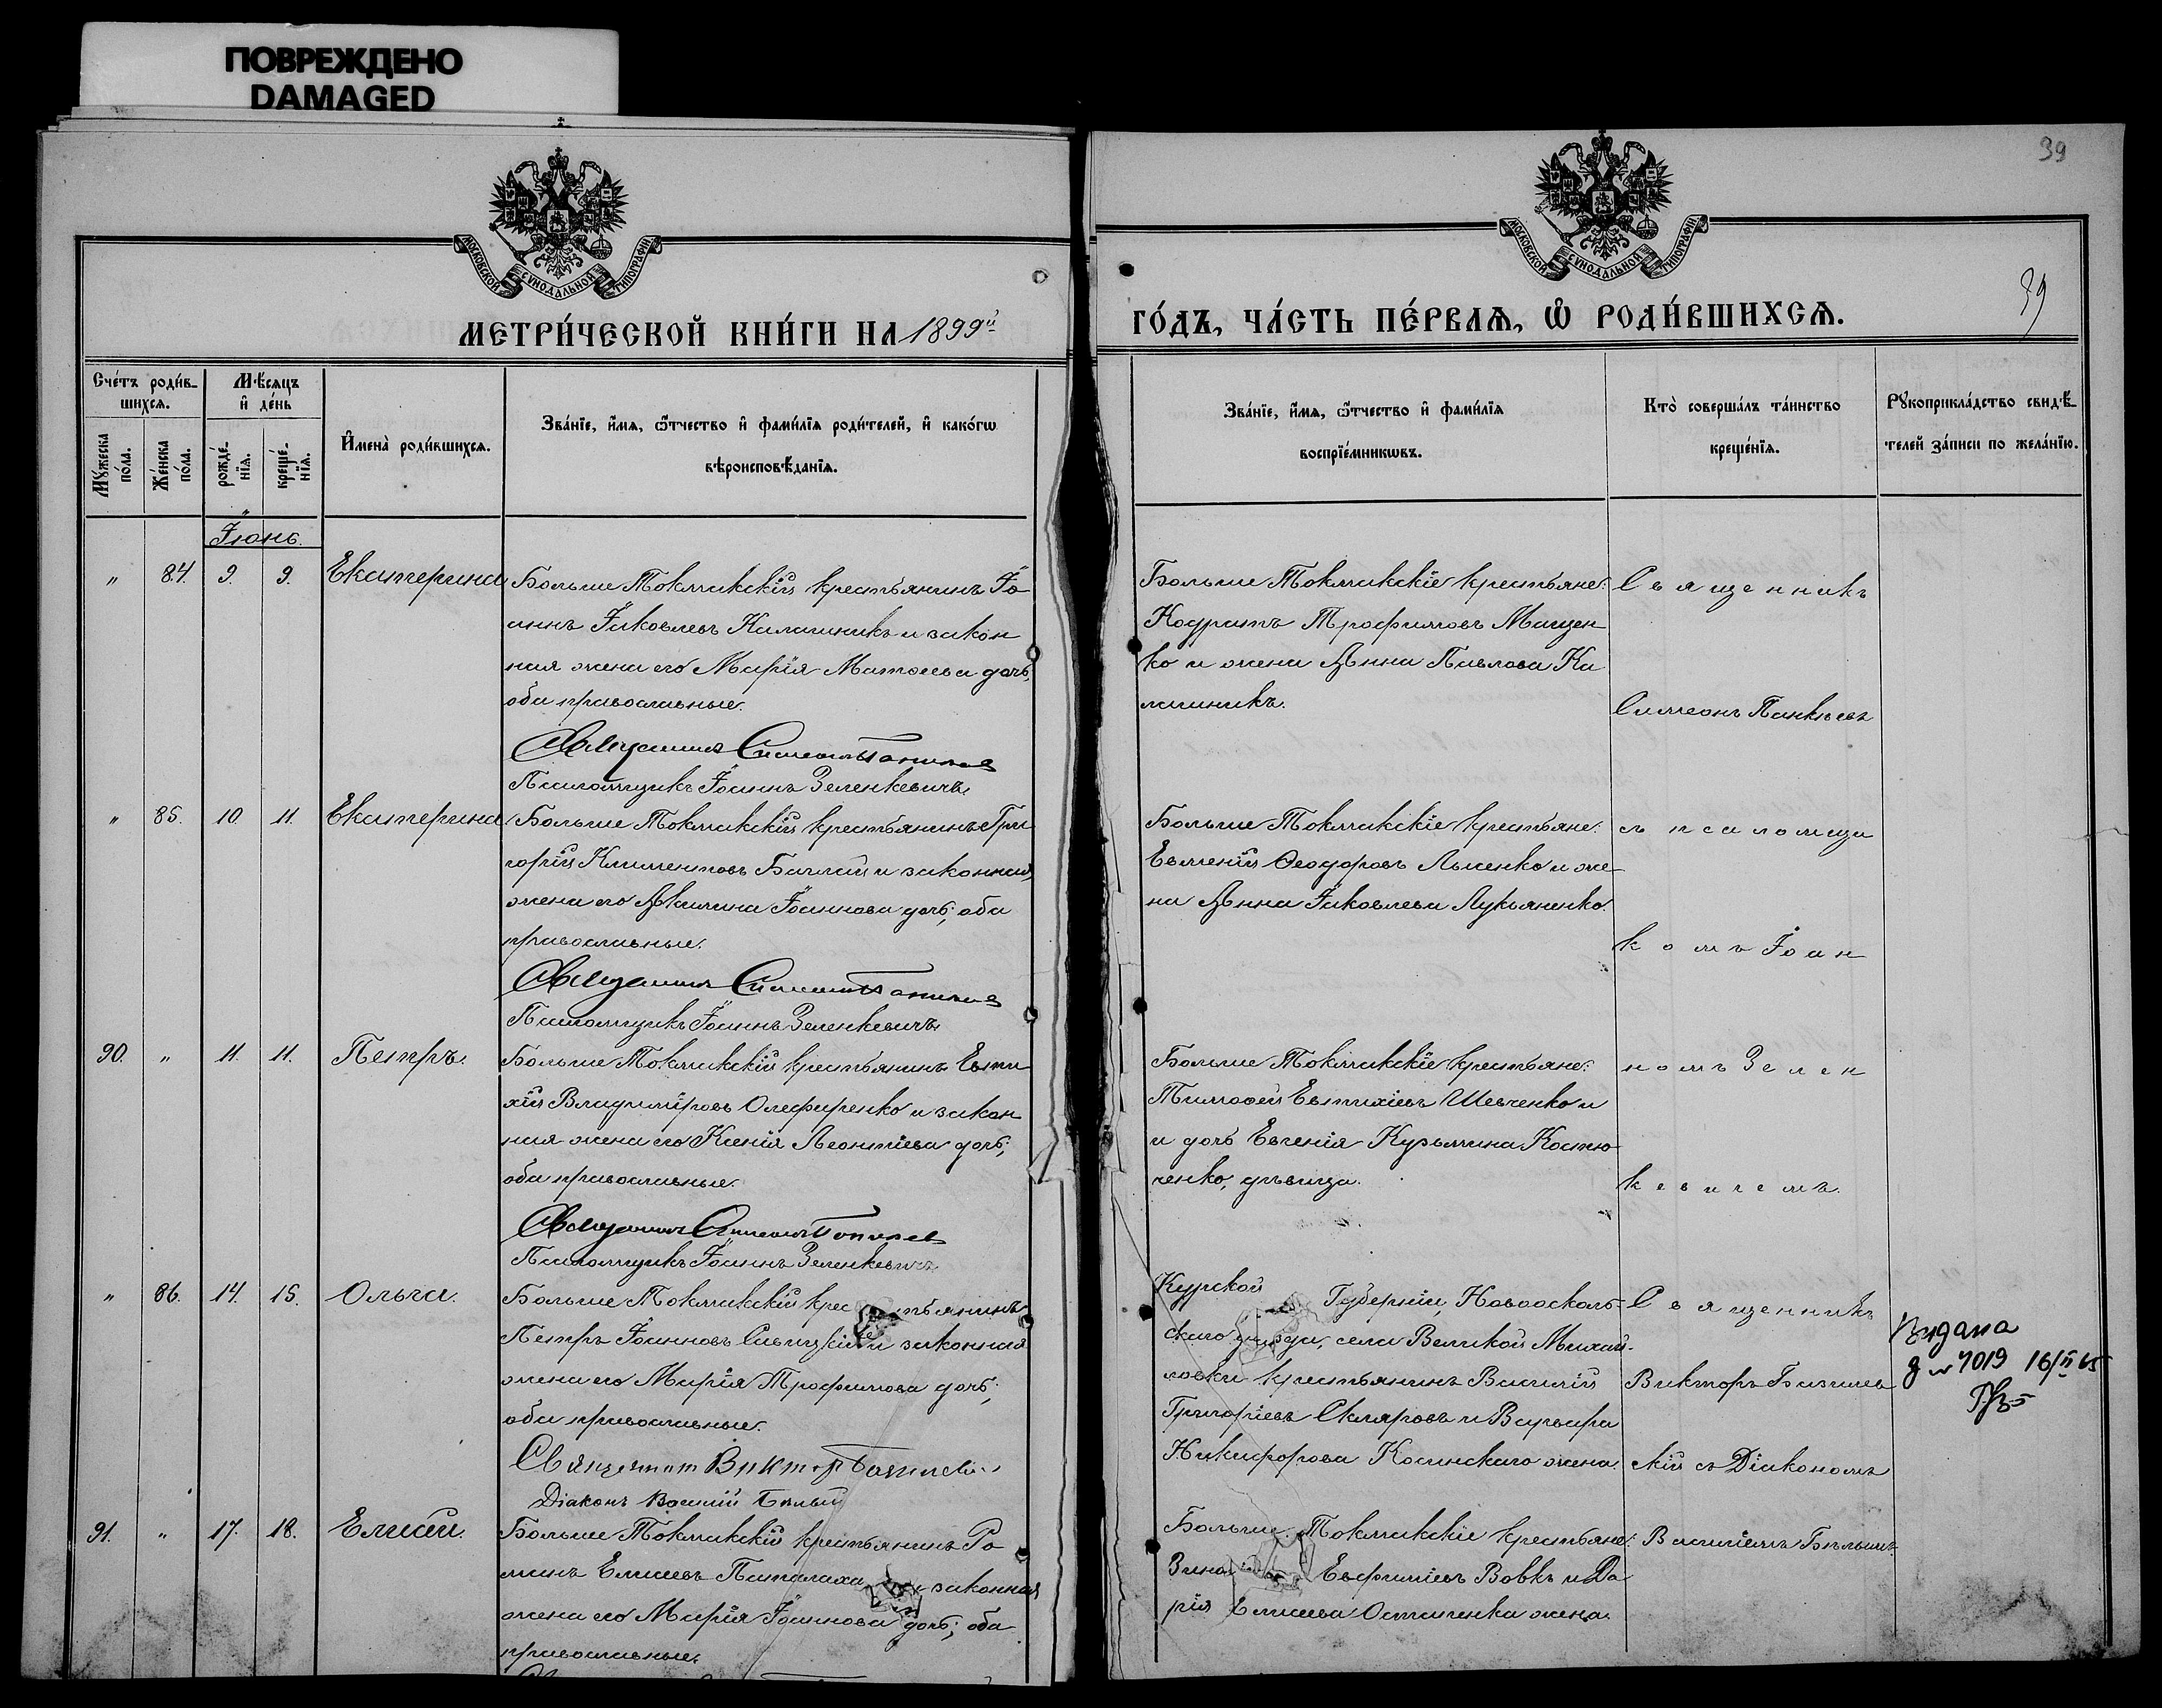 ПОВРЕЖДЕНО
DAMAGED
39
МОСКОВСКОЙ СѴНОДАЛЬНОЙ ТИПОГРАФІИ
МОСКОВСКОЙ СѴНОДАЛЬНОЙ ТИПОГРАФІИ
39
МЕТРИ́ЧЕСКОЙ КНИ́ГИ НА 1899й
ГО́ДЪ, ЧА́СТЬ ПЕ́РВАѦ, Ѡ҆ РОДИ́ВШИХСѦ.
Счетъ родившихсѧ.
Мꙋжеска пола.
Женска пола.
Мѣсѧцъ и день
рожденїѧ.
крещенїѧ.
Имена родившихсѧ.
Званїе, имѧ, ѿчество и фамилїѧ родителей, и какогѡ
вѣроисповѣданїѧ.
Званїе, имѧ, ѿчество и фамилїѧ
воспрїемникѡвъ.
Кто совершалъ таинство
крещенїѧ.
Рꙋкоприкладство свидѣ-
телей записи по желанїю.
Іюнь.
" 84. 9. 9. Екатерина
Больше Токмакскій крестьянинъ Іо
аннъ Іаковлевъ Калашникъ и закон
ная жена его Марія Матѳеева дочь,
оба православные.
Священникъ Симеонъ Панкѣевъ
Псаломщикъ Іоаннъ Зеленкевичъ
Больше Токмакскіе крестьяне:
Кодратъ Трофимовъ Мащен
ко и жена Анна Павлова Ка
лашникъ.
Священникъ
Симеонъ Панкѣевъ
" 85. 10. 11. Екатерина
Больше Токмакскій крестьянинъ Гри
горій Климентовъ Баглай и законная
жена его Акилина Іоаннова дочь; оба
православные.
Священникъ Симеонъ Панкѣевъ
Псаломщикъ Іоаннъ Зеленкевичъ
Больше Токмакскіе крестьяне:
Евменій Ѳеодоровъ Лысенко и же
на Анна Іаковлева Лукьяненко.
съ псаломщи
комъ Іоан
90. " 11. 11. Петръ.
Больше Токмакскій крестьянинъ Евти
хій Владиміровъ Олефиренко и закон
ная жена его Ксенія Леонтіева дочь;
оба православные.
Священникъ Симеонъ Панкѣевъ
Псаломщикъ Іоаннъ Зеленкевичъ
Больше Токмакскіе крестьяне:
Тимоѳей Евтихіевъ Шевченко и
и дочь Евгенія Кузьмина Костю
ченко, дѣвица.
номъ Зелен
кевичемъ.
" 86. 14. 15. Ольга.
Больше Токмакскій крестьянинъ
Петръ Іоанновъ Савицкій и законная
жена его Марія Трофимова дочь;
оба православные.
Священникъ Викторъ Базилев
Діаконъ Василій Бѣлый
Курской Губерніи, Новоосколь-
скаго уѣзда, села Великой Михай-
ловки крестьянинъ Василій
Григоріевъ Скляровъ и Варвара
Никифорова Косинскаго жена.
Священникъ
Викторъ Базилев
скій съ Діакономъ
Видана
7019 16/II 65
91. " 17. 18. Елисей.
Больше Токмакскій крестьянинъ Ро
манъ Елисеевъ Паталаха и законная
жена его Марія Іоаннова дочь; оба
православные.
Больше Токмакскіе крестьяне:
Евфиміевъ Вовкъ и Да
рія Елисеева Остапенка жена.
Василіемъ Бѣлымъ.